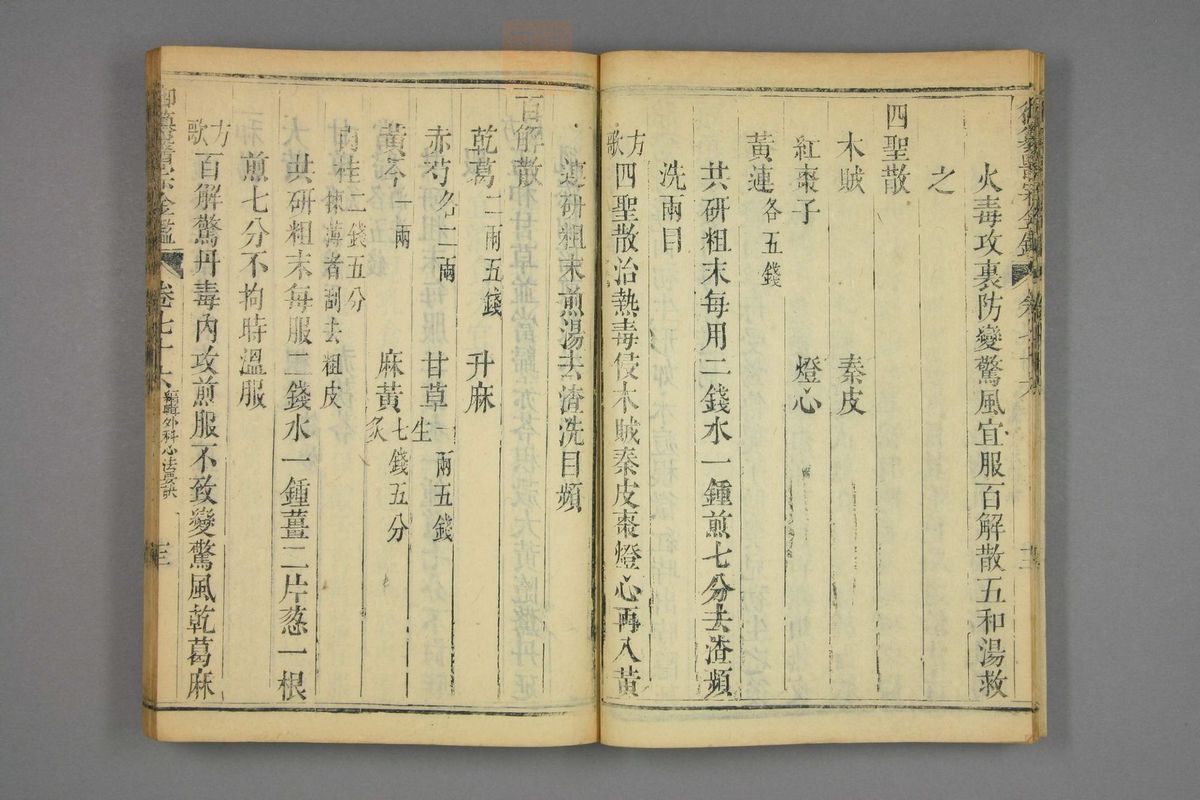 火毒攻裏防變驚風宜服百解散五和湯救
之
四聖散
木賊 秦皮
紅棗子 燈心
黃連各五錢
共研粗末每用二錢水一鍾煎七分去渣頻
洗兩目
方歌 四聖散治熱毒侵木賊秦皮棗燈心再入黃
連研粗末煎湯去渣洗目頻
百解散
乾葛二兩五錢 升麻
赤芍各二兩 甘草生一兩五錢
黃芩一兩 麻黃炙七錢五分
肉桂二錢五分揀薄者刮去粗皮
共研粗末每服二錢水一鍾薑二片葱一根
煎七分不拘時溫服
方歌 百解驚丹毒內攻煎服不致變驚風乾葛麻
御纂醫宗金鑑 卷七十六 編輯外科心法要訣 十三